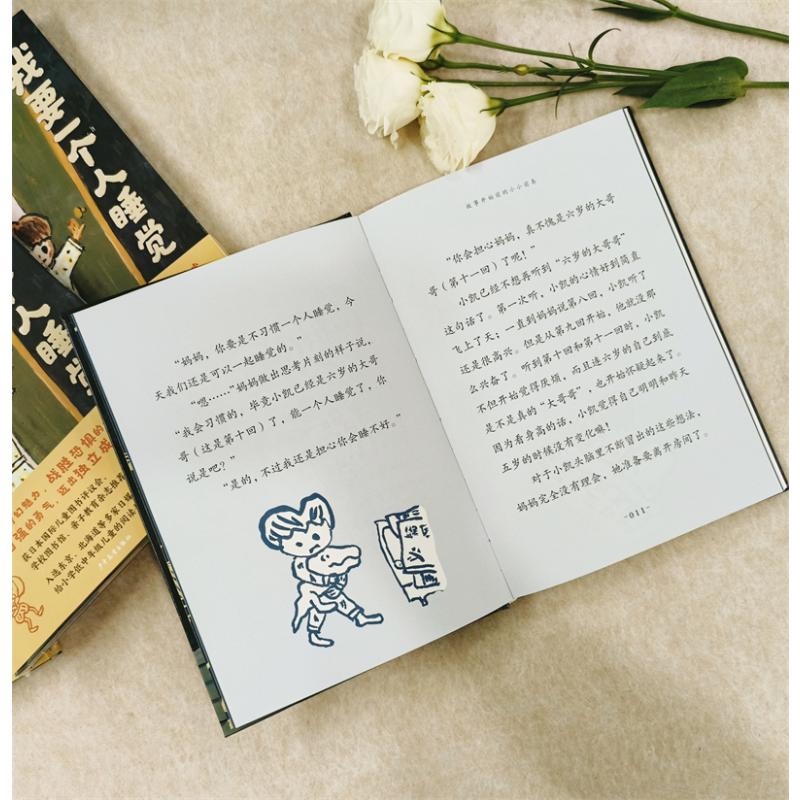 我要一个人睡觉
个人睡觉
幻魅力，战胜恐惧的
强的勇气，迈出独立成
获日本国际儿童图书评议会、
学校图书馆、亲子教育杂志推荐
入选东京、北海道等多家县
给小学低中年级儿童的阅读
“妈妈，你要是不习惯一个人睡觉，今
天我们还是可以一起睡觉的。”
“嗯……”妈妈做出思考片刻的样子说，
“我会习惯的，毕竟小凯已经是六岁的大哥
哥（这是第十回）了，能一个人睡觉了，你
说是吧？”
“是的，不过我还是担心你会睡不好。”
故事开始前的小小前奏
“你会担心妈妈，真不愧是六岁的大哥
哥（第十一回）了呢！”
小凯已经不想再听到“六岁的大哥哥”
这句话了。第一次听，小凯的心情好到简直
飞上了天；一直到妈妈说第八回，小凯听了
还是很高兴。但是从第九回开始，他就没那
么兴奋了。听到第十回和第十一回时，小凯
不但开始觉得厌烦，而且连六岁的自己到底
是不是真的“大哥哥”，也开始怀疑起来了。
因为看身高的话，小凯觉得自己明明和昨天
五岁的时候没有变化嘛！
对于小凯头脑里不断冒出的这些想法，
妈妈完全没有理会，她准备要离开房间了。
-011-